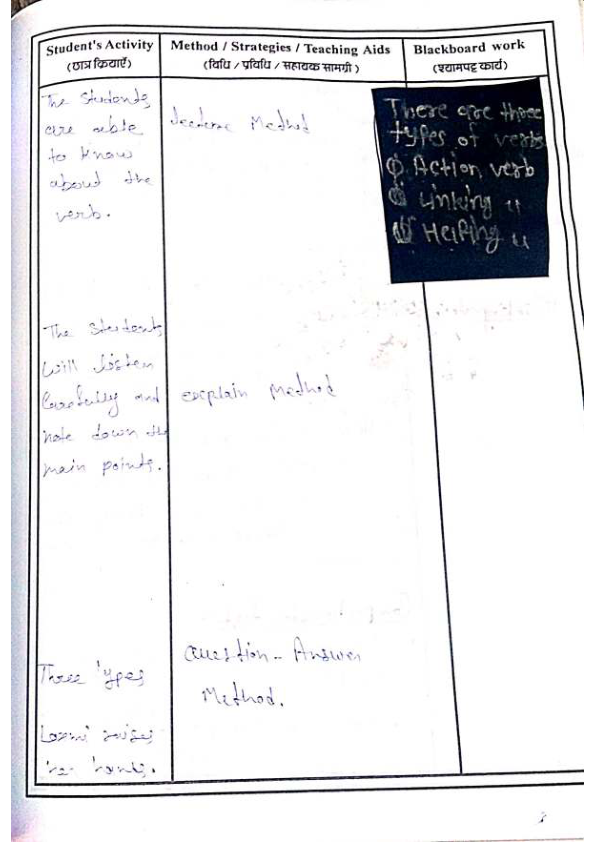 Student's Activity
(छात्र क्रियाएँ)
Method / Strategies / Teaching Aids
(विधि / प्रविधि / सहायक सामग्री)
Blackboard work
(श्यामपट्ट कार्य)
The Students
are able
to know
about the
verb.
Lecture Method
There are three
types of verbs
Action verb
Linking 〃
Helping 〃
The Students
will listen
Carefully and
note down the
main points.
explain Method
Question - Answer
Method.
Three Types
Laxmi raises
her hands.